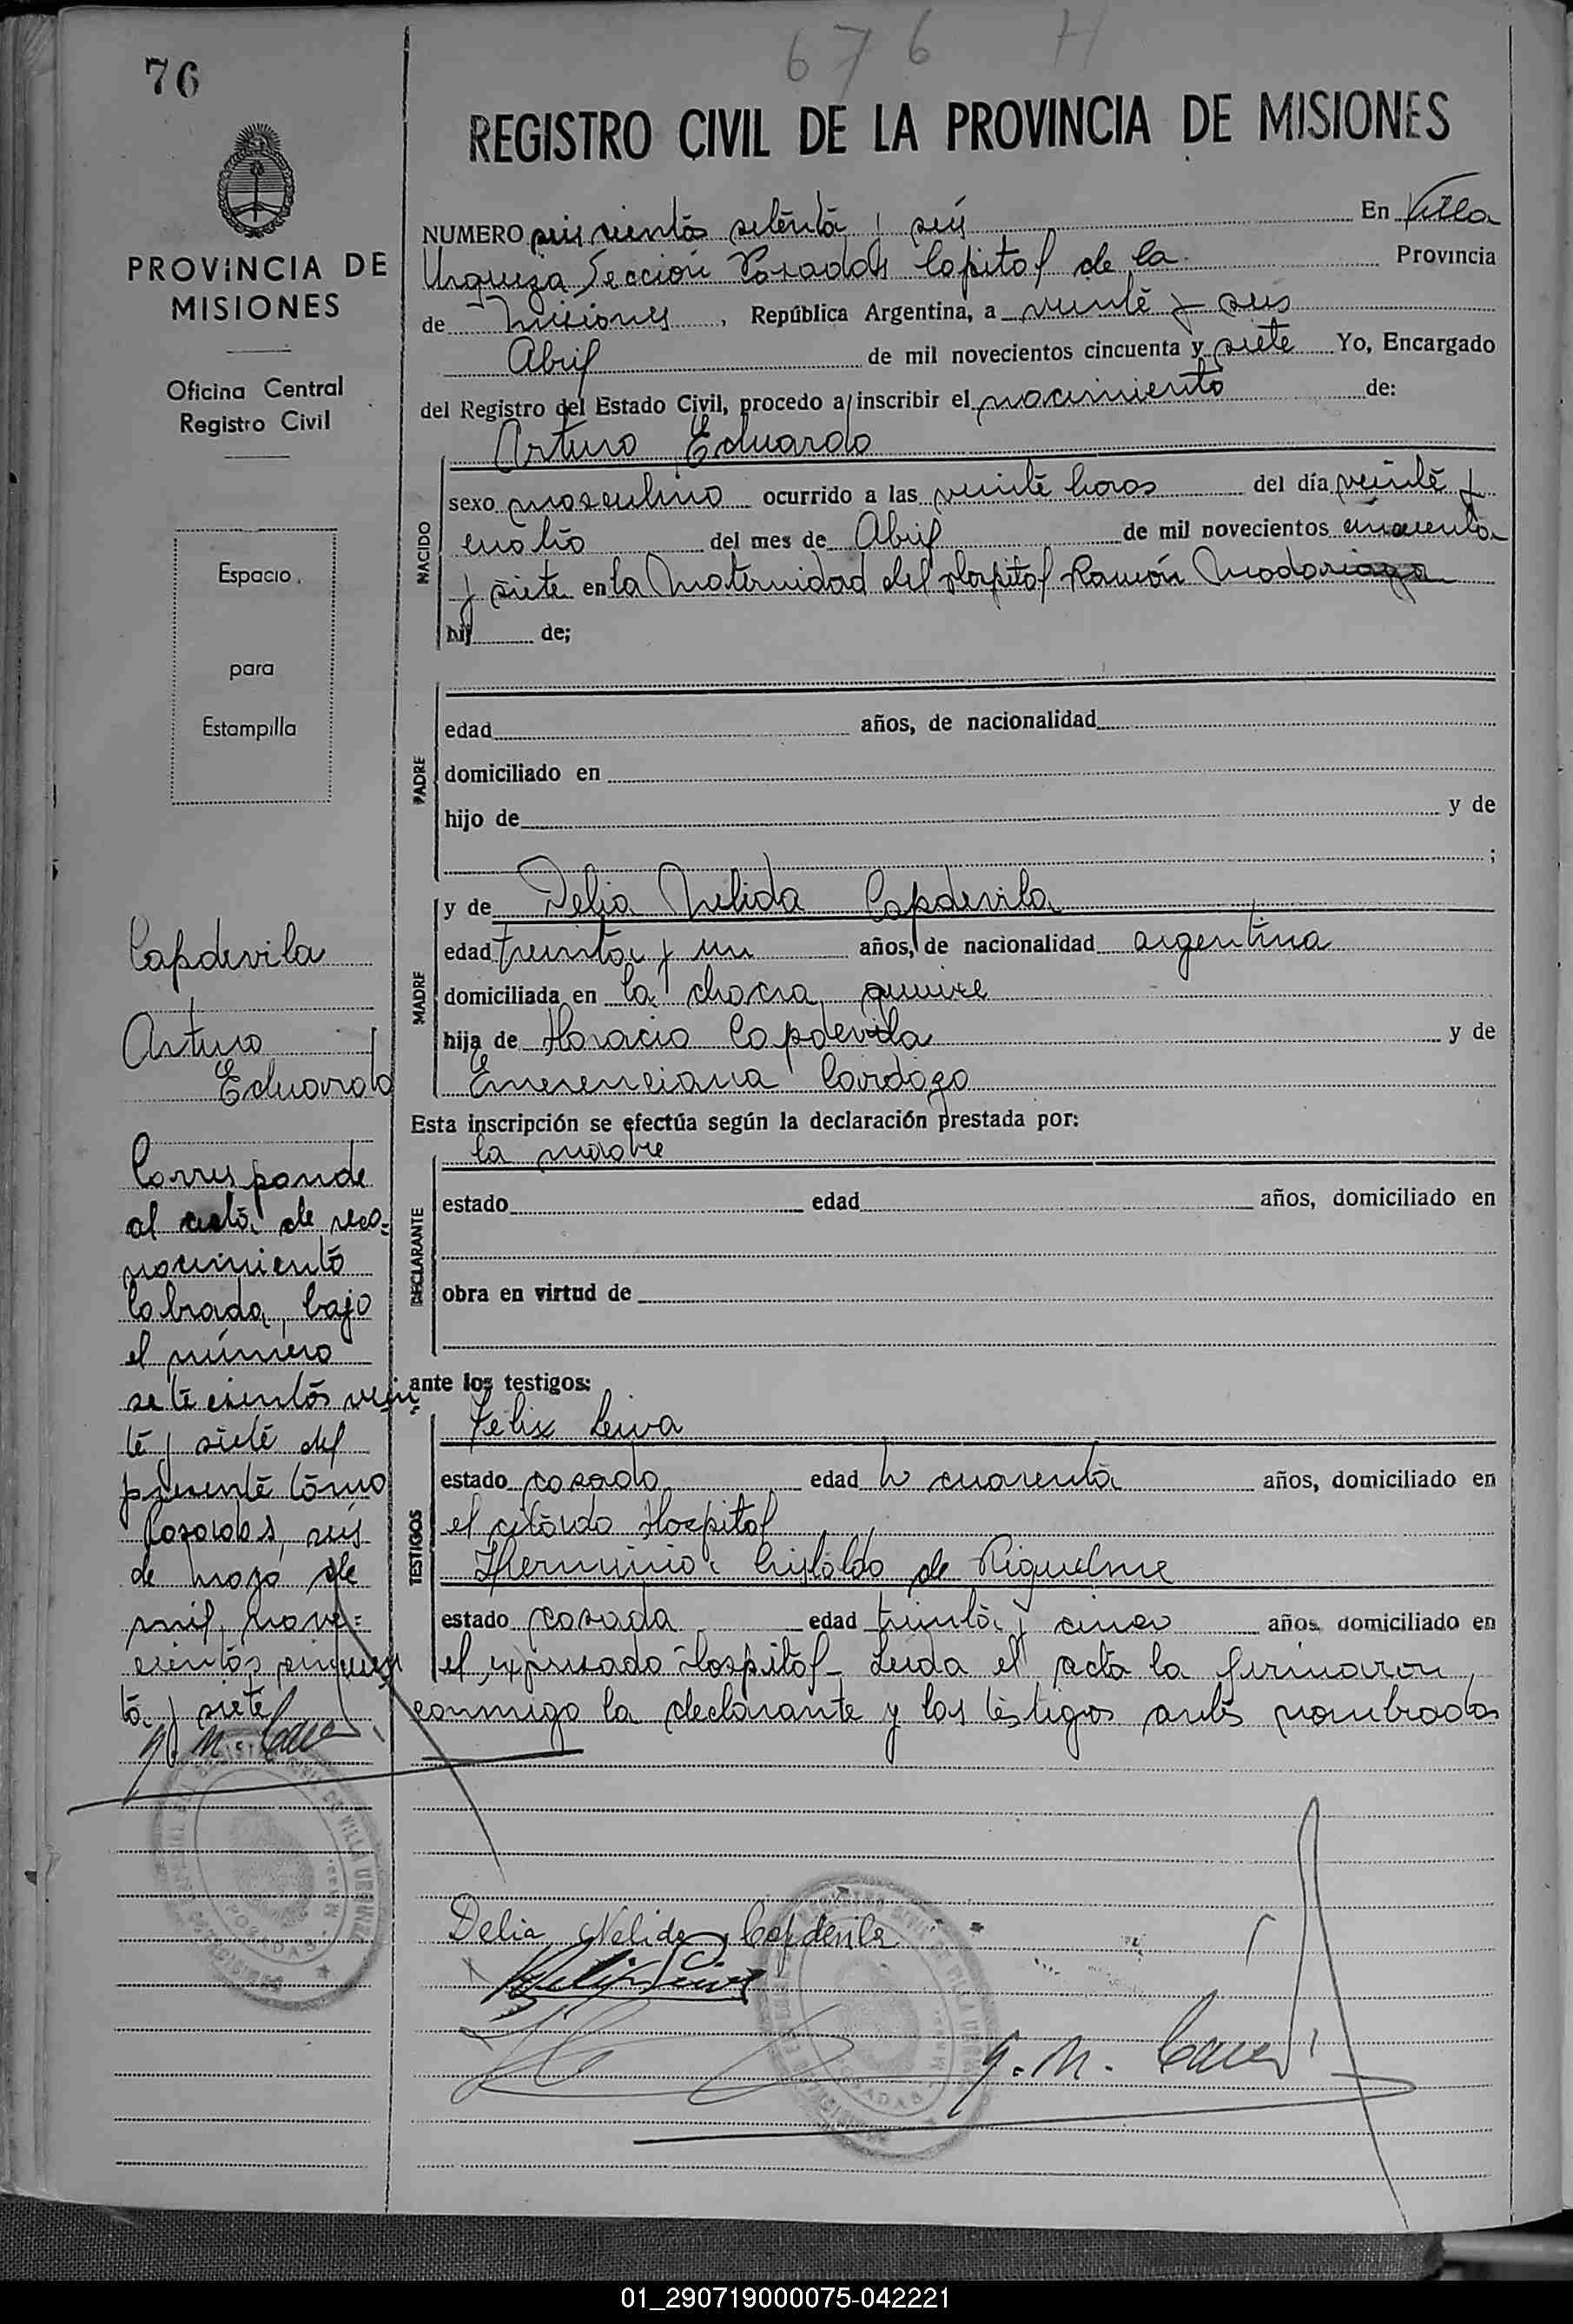 676 H
76
REGISTRO CIVIL DE LA PROVINCIA DE MISIONES
PROVINCIA DE
MISIONES
Oficina Central
Registro Civil
Espacio
para
Estampilla
NUMERO seis cientos setenta y seis En Villa
Urquiza Sección Posadas Capital de la Provincia
de Misiones, República Argentina, a veinte y seis
Abril de mil novecientos cincuenta y siete Yo, Encargado
del Registro del Estado Civil, procedo a inscribir el nacimiento de:
Arturo Eduardo
NACIDO
sexo masculino ocurrido a las veinte horas del día veinte y
cuatro del mes de Abril de mil novecientos cincuenta
y siete en la Maternidad del Hospital Ramón Madariaga
hij de;
PADRE
edad años, de nacionalidad
domiciliado en
hijo de y de
;
MADRE
y de Delia Nelida Capdevila
edad treinta y un años, de nacionalidad argentina
domiciliada en la chacra quince
hija de Horacio Capdevila y de
Emerenciana Cardozo
Esta inscripción se efectúa según la declaración prestada por:
la madre
DECLARANTE
estado edad años, domiciliado en
obra en virtud de
ante los testigos:
TESTIGOS
Felix Leiva
estado casado edad cuarenta años, domiciliado en
el citado Hospital
Herminia Cristaldo de Riquelme
estado casada edad treinta y cinco años domiciliado en
el expresado Hospital - Leida el acta la firmaron
conmigo la declarante y los testigos antes nombrados
Capdevila
Arturo
Eduardo
Corresponde
al acta de reco=
nocimiento
labrada bajo
el número
sete cientos vein
te y siete del
presente tomo
Posadas, seis
de mayo de
mil nove=
cientos cincuen
ta y siete
Delia Nelida Capdevila
Felix Leiva
01_290719000075-042221